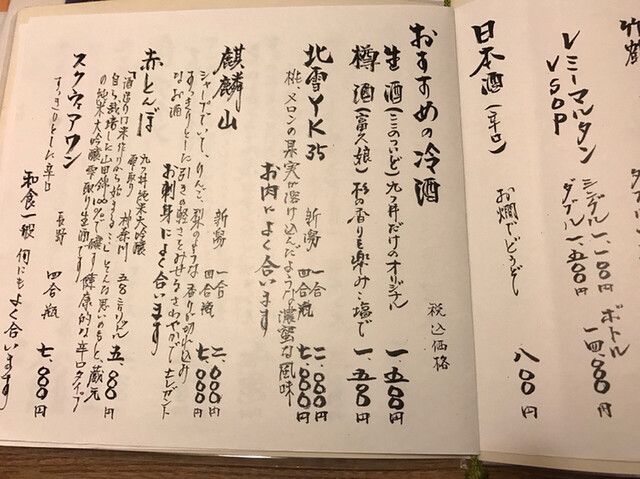 レミーマルタン
VSOP
シングル 一、一〇〇円
ダブル 一、五〇〇円
ボトル
一四、〇〇〇円
日本酒（辛口）
お燗でどうぞ
八〇〇円
おすすめの冷酒
税込価格
生酒（三のついど）九つ井だけのオリジナル 一、五〇〇円
樽酒（富久娘）杉の香りも楽み…塩で 一、五〇〇円
北雪YK35
新潟 一合 二、〇〇〇円
四合瓶 七、〇〇〇円
桃、メロンの果実が溶け込んだような濃蜜な風味
お肉によく合います
麒麟山
新潟 一合 二、〇〇〇円
四合瓶 七、〇〇〇円
シャープでいて、りんと、梨のような香り
すっきりとした引きの軽さとみせるさわやかで
なお酒
お刺身によく合います
赤とんぼ
九つ井純米大吟醸
雫取り
神奈川
五、〇〇〇円
「酒造りは米作りから始まる」
自ら栽培した山田錦100%で醸す健康的な辛口タイプ
の純米大吟醸雫取り生酒です
スクウィアワン
長野 四合瓶 七、〇〇〇円
すっきりとした辛口
和食一般 何にもよく合います